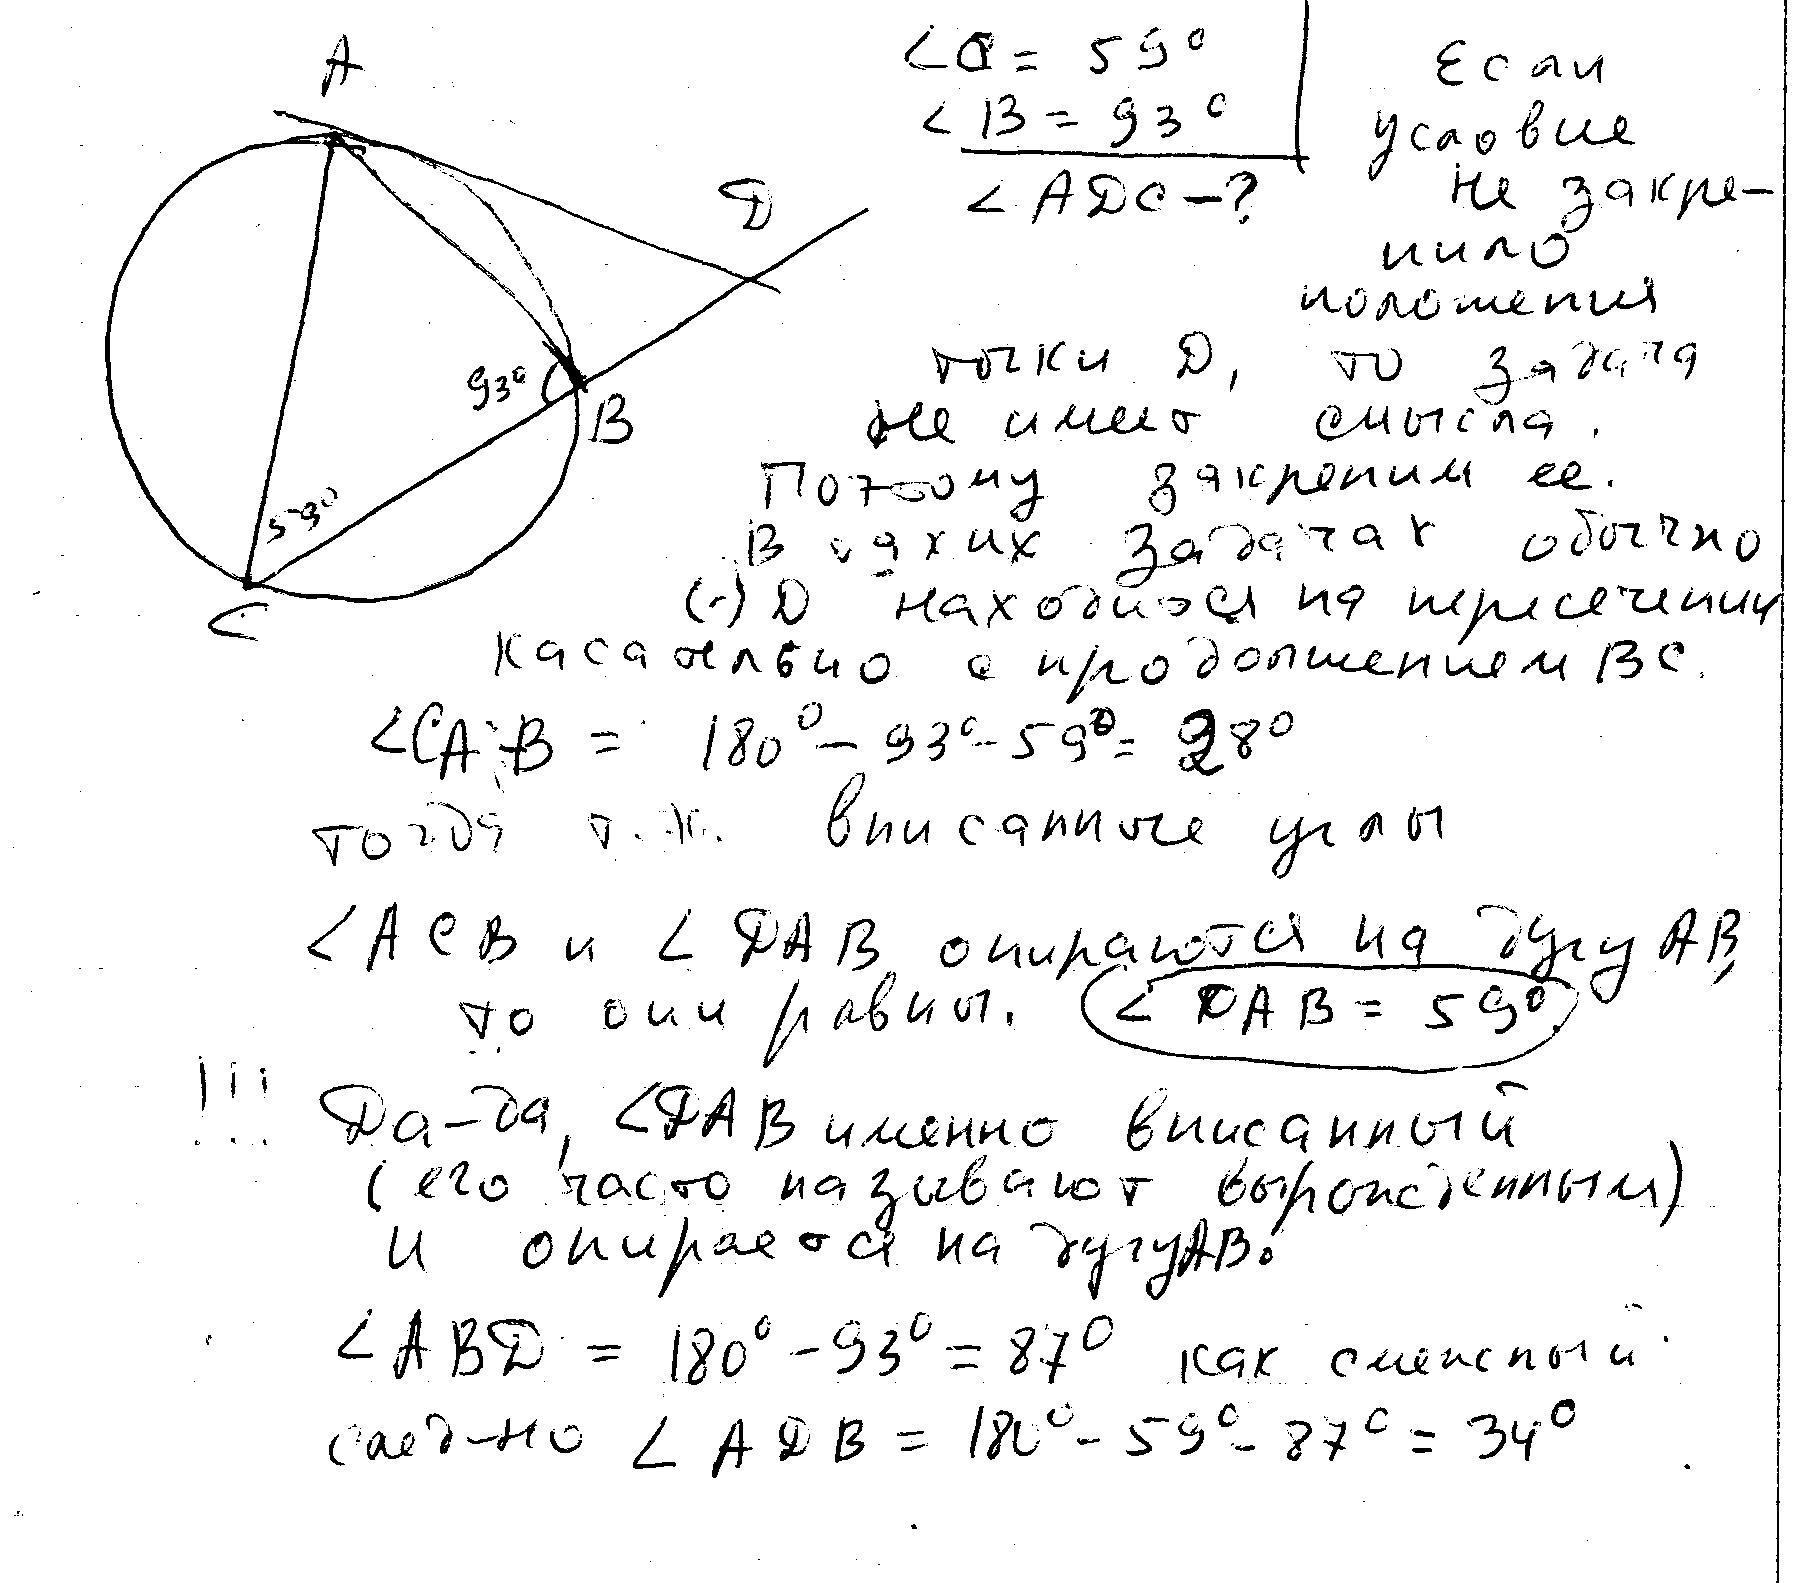 A
∠C = 59°
∠B = 93°
∠ADC - ?
Если
условие
не закре-
пило
положения
D
точки D, то задача
93°
B
не имеет смысла.
Поэтому закрепим ее.
59°
В таких задачах обычно
(·) D находится на пересечении
C
касательно с продолжением BC.
∠CAB = 180° - 93° - 59° = 28°
тогда т.к. вписанные углы
∠ACB и ∠DAB опираются на дугу AB,
то они равны. ∠DAB = 59°
!!! Да-да, ∠DAB именно вписанный
(его часто называют вырожденным)
и опирается на дугу AB.
∠ABD = 180° - 93° = 87° как смежный
след-но ∠ADB = 180° - 59° - 87° = 34°